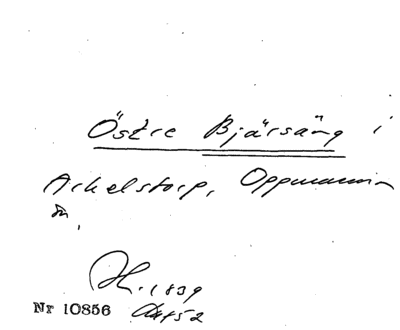 Östre Bjärsäng i
Arkelstorp, Oppmanna
sn,
H. 1839
Nr 10856 Okt 52